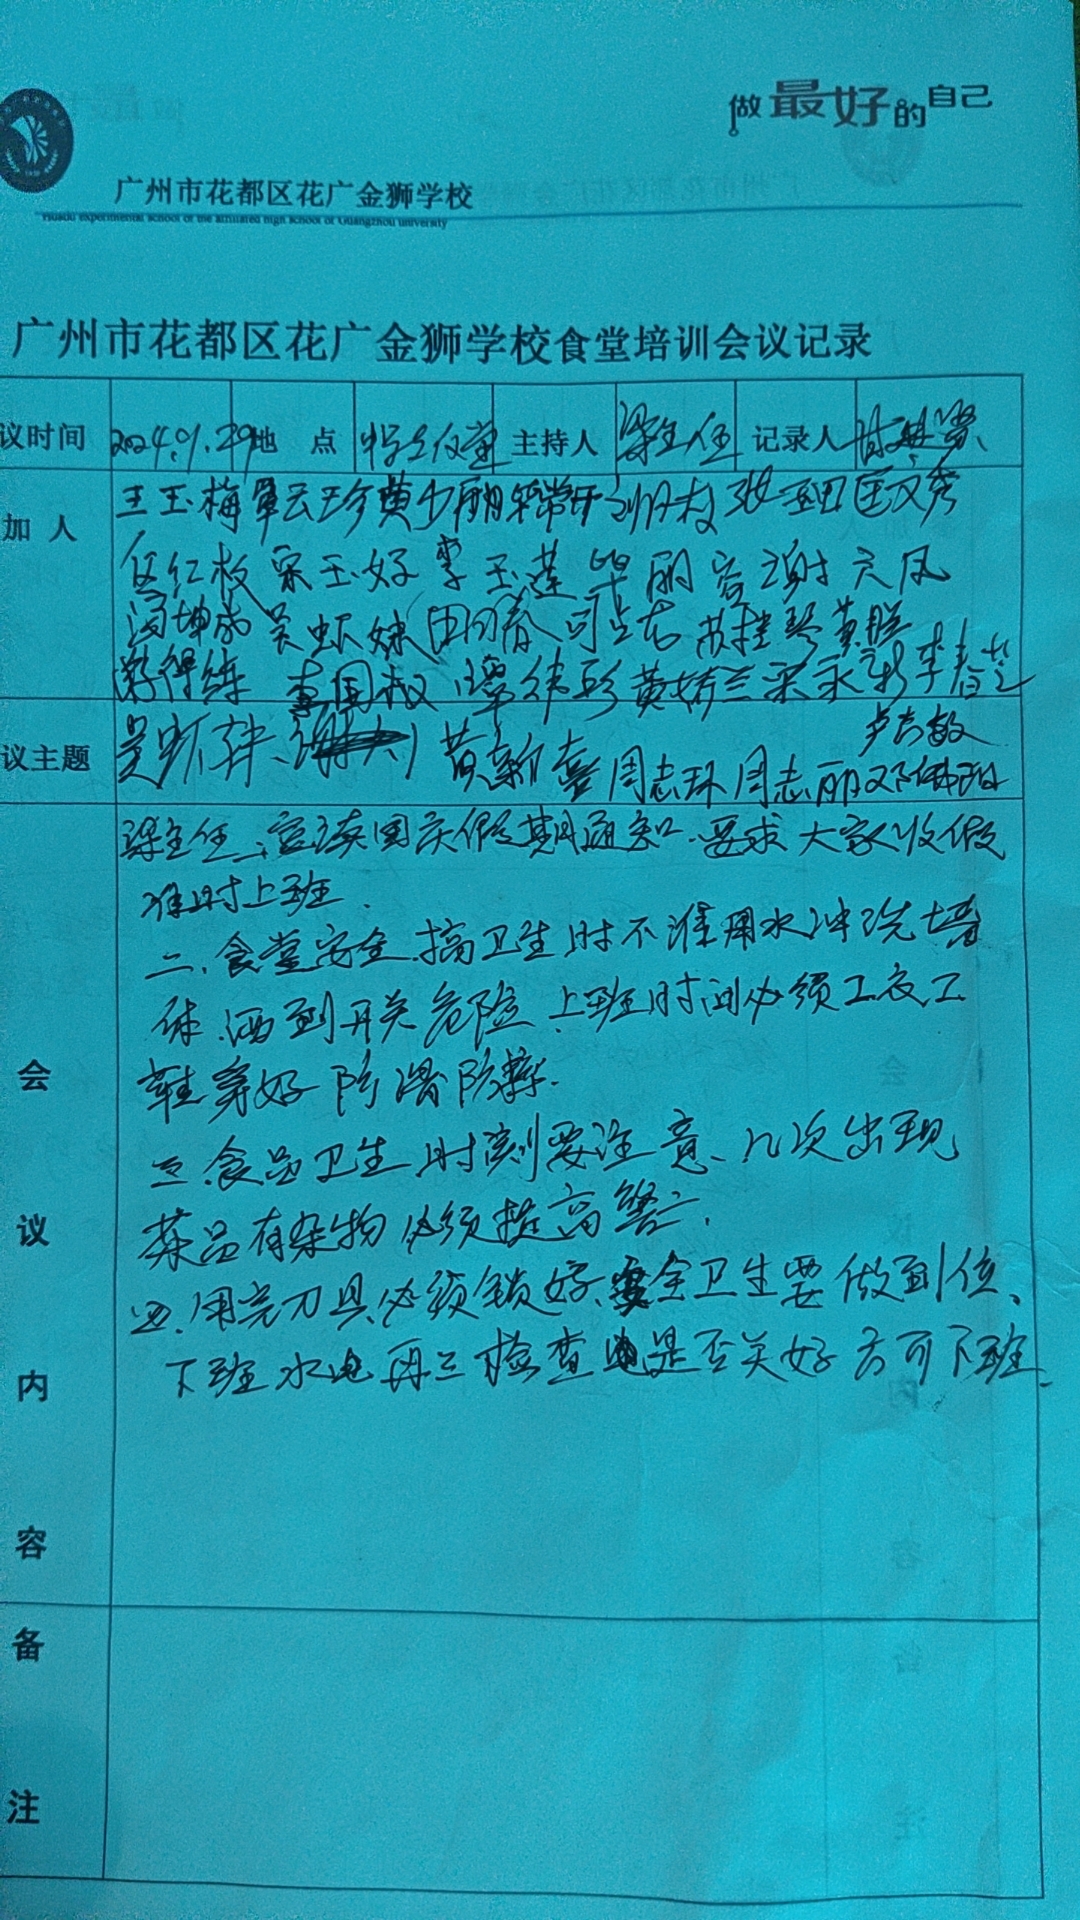 做最好的自己
广州市花都区花广金狮学校
Huadu experimental school of the affiliated high school of Guangzhou university
广州市花都区花广金狮学校食堂培训会议记录
议时间 2024.9.29 地点 主持人 梁主任 记录人
加人
王玉梅 覃云珍 黄少丽 张 匡文秀
伍红枚 宋玉好 李玉莲 毕丽容 谢六凤
冯坤成 吴虾妹 田闪春 苏桂琴
李国权 黄娇兰 宋永彩 李春兰
卢志敏
议主题
黄新喜 周志环 周志丽
梁主任一、宣读国庆假期通知、要求大家收假
准时上班.
二、食堂安全.搞卫生时不准用水冲洗墙
体.洒到开关危险.上班时间必须工衣工
鞋穿好防滑防摔.
三.食品卫生.时刻要注意、几次出现
菜品有杂物必须提高警.
四.用完刀具必须锁好、安全卫生要做到位、
下班水电再三检查电是否关好方可下班.
会
议
内
容
备
注